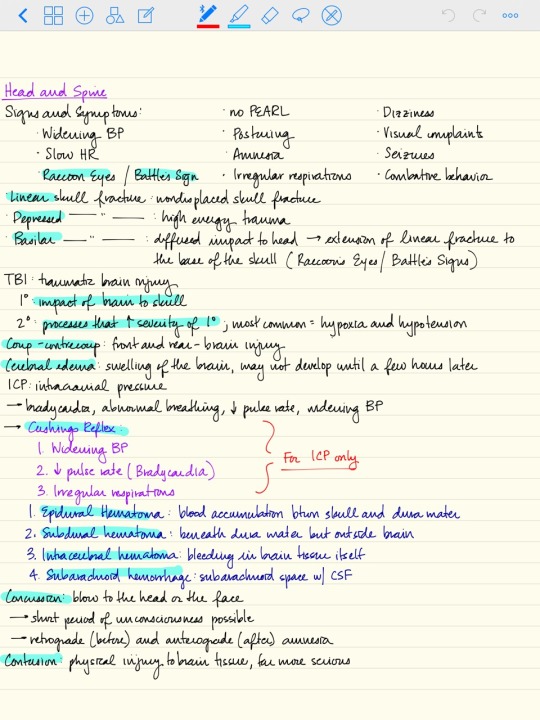 Head and Spine
Signs and Symptoms:
· Widening BP
· Slow HR
· Raccoon Eyes / Battle's Sign
· no PEARL
· Posturing
· Amnesia
· Irregular respirations
· Dizziness
· Visual complaints
· Seizures
· Combative behavior
Linear skull fracture: nondisplaced skull fracture
· Depressed — " — : high energy trauma
· Basilar — " — : diffused impact to head → extension of linear fracture to
the base of the skull (Raccoon's Eyes / Battle's Signs)
TBI: traumatic brain injury
1°: impact of brain to skull
2°: processes that ↑ severity of 1°; most common = hypoxia and hypotension
Coup-contrecoup: front and rear-brain injury
Cerebral edema: swelling of the brain, may not develop until a few hours later
ICP: intracranial pressure
→ bradycardia, abnormal breathing, ↓ pulse rate, widening BP
→ Cushings Reflex:
1. Widening BP
2. ↓ pulse rate (Bradycardia)
3. Irregular respirations
For ICP only
1. Epidural Hematoma: blood accumulation btwn skull and dura mater
2. Subdural hematoma: beneath dura mater but outside brain
3. Intracerebral hematoma: bleeding in brain tissue itself
4. Subarachnoid hemorrhage: subarachnoid space w/ CSF
Concussion: blow to the head or the face
→ short period of unconsciousness possible
→ retrograde (before) and anterograde (after) amnesia
Contusion: physical injury to brain tissue, far more serious